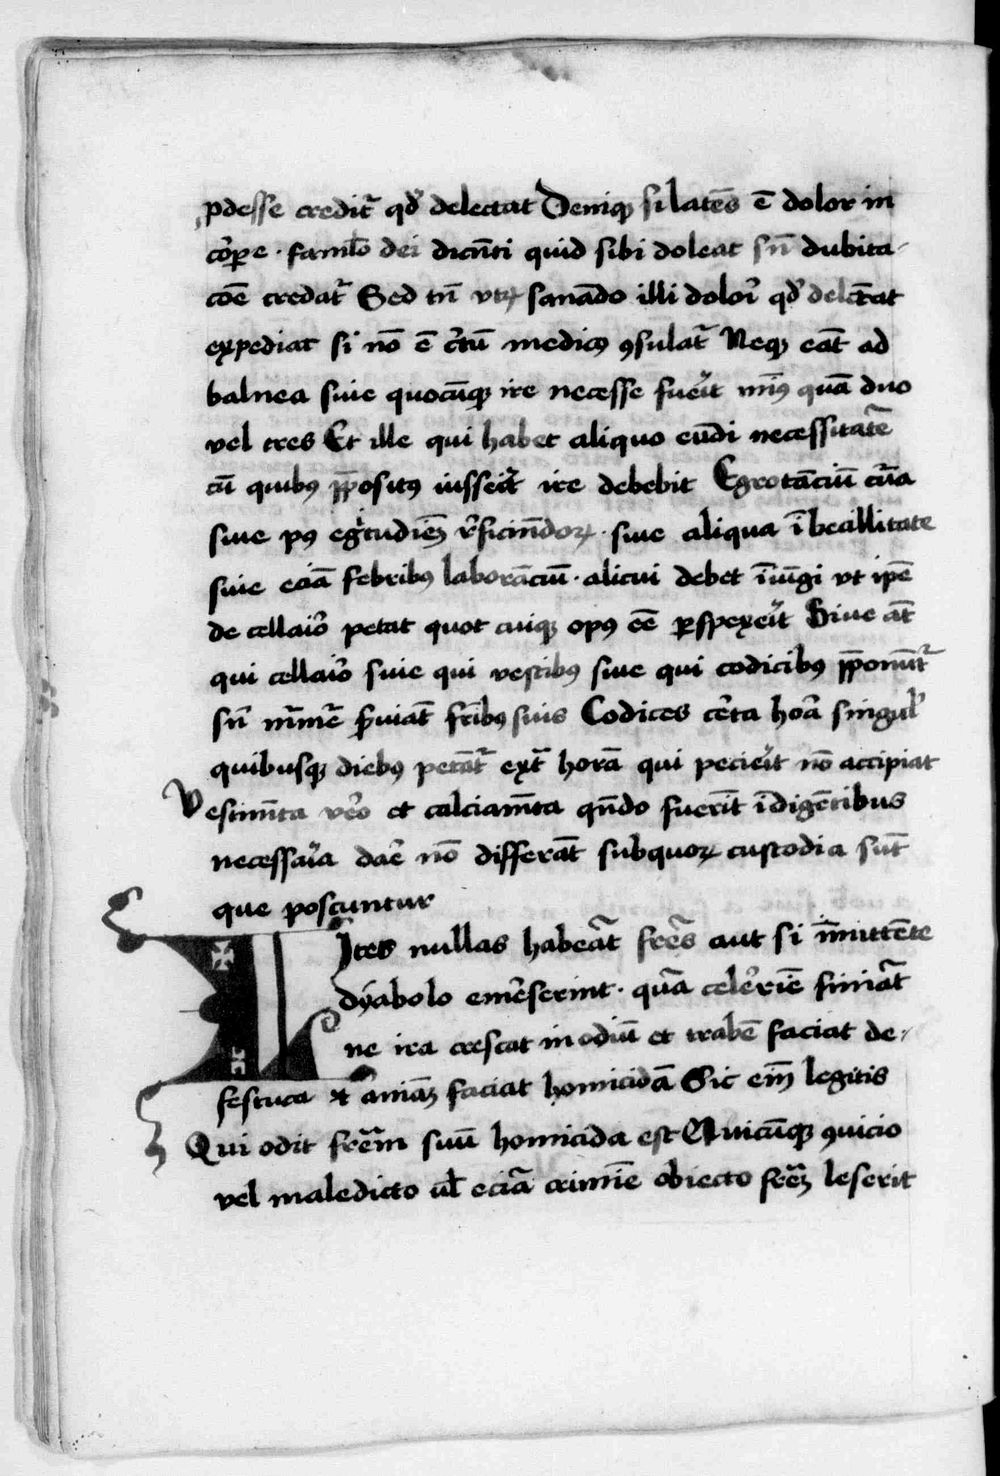 pdesse credit᷑ qd̛ delectat Deniqꝫ si latēs ē dolor in
cor̄pe · famlo̅ dei dicn̄ti quid sibi doleat sn̄ dubita-
coē credat᷑ Sed tn̄ vtꝝ sanādo illi dolor̛ qd̛ delectat
expediat si nō ē c̛tū medicꝰ ꝯsulat᷑ Neqꝫ eāt ad
balnea siue quocūqꝫ ire necesse fuer̛it min̛ꝰ quā duo
vel tres Et ille qui habet aliquo eūdi necessitatē
cū quibꝰ p̄positꝰ iusser̛it ire debebit Egrotāciū cur̄a
siue pꝰ egr̛tudiēꝫ r̛ficiēdoꝝ · siue aliqua ībecillitate
siue eciā febribꝰ laborāciū · alicui debet īiūgi vt ip̄e
de cellar̛io petat quot cuiqꝫ opꝰ eē ꝑspexer̛it Siue āt
qui cellar̛io siue qui vestibꝰ siue qui codicibꝰ p̄ponūt᷑
sn̄ mr̄mure s̛uiāt fr̄ibꝰ suis Codices cer̛ta hor̄a singul̛
quibusqꝫ diebꝰ petāt᷑ ext᷑ horā qui pecier̛it nō accipiat
Vestimn̄ta ver̛o et calciamn̄ta qn̄do fuerīt īdigētibus
necessar̛ia dar̛e nō differāt sub quoꝝ custodia sūt
que poscuntur
Lites nullas habeāt fr̄es aut si īmittēte
dyabolo emer̛serint · quā celer̛iē finiāt
ne ira crescat in odiū et trabē faciat de-
festuca et aniāꝫ faciat homicidā Sic em̄ legitis
Qui odit fr̄em suū homicida est Quicūqꝫ ꝯuicio
vel maledicto vl̛ eciā crimīe obiecto fr̄eꝫ leserit